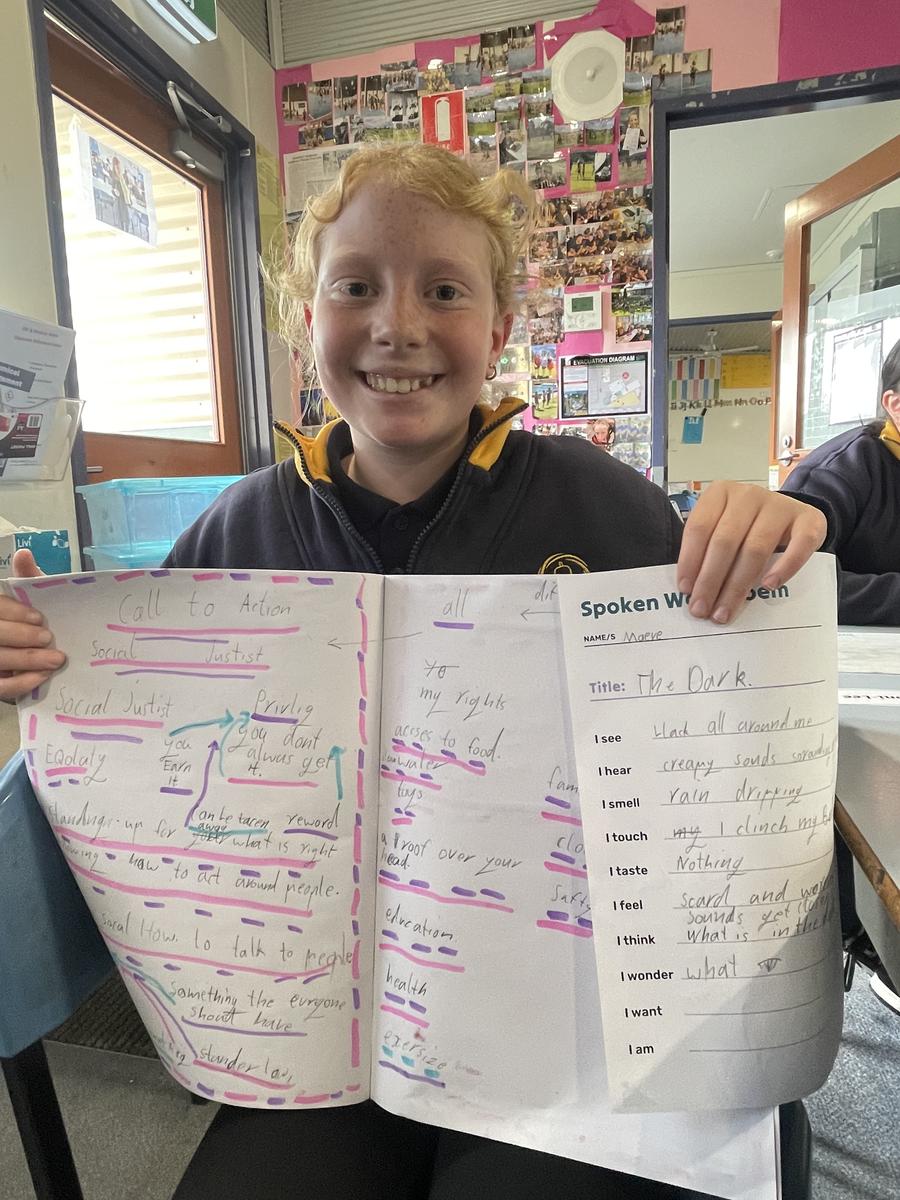 EVACUATION DIAGRAM
Livi
Call to Action
Social Justist
Social Justist
Privlig
you
Earn
it
you dont
alwas get
it.
EQolaty
can be tacen
away
reword
standings up for
what is right
how to act around people.
How to talk to people
Something the euryone
shout have
all
my rights
acsses to food.
water
toys
a roof over your
head.
education.
health
exersize
fam
clo
Safty
Spoken Wo oem
NAME/S Maeve
Title: The Dark.
I see black all around me
I hear creapy sonds
I smell rain dripping
I touch my I clinch my
I taste Nothing
I feel scard and
sounds get
I think what is in the
I wonder what
I want
I am